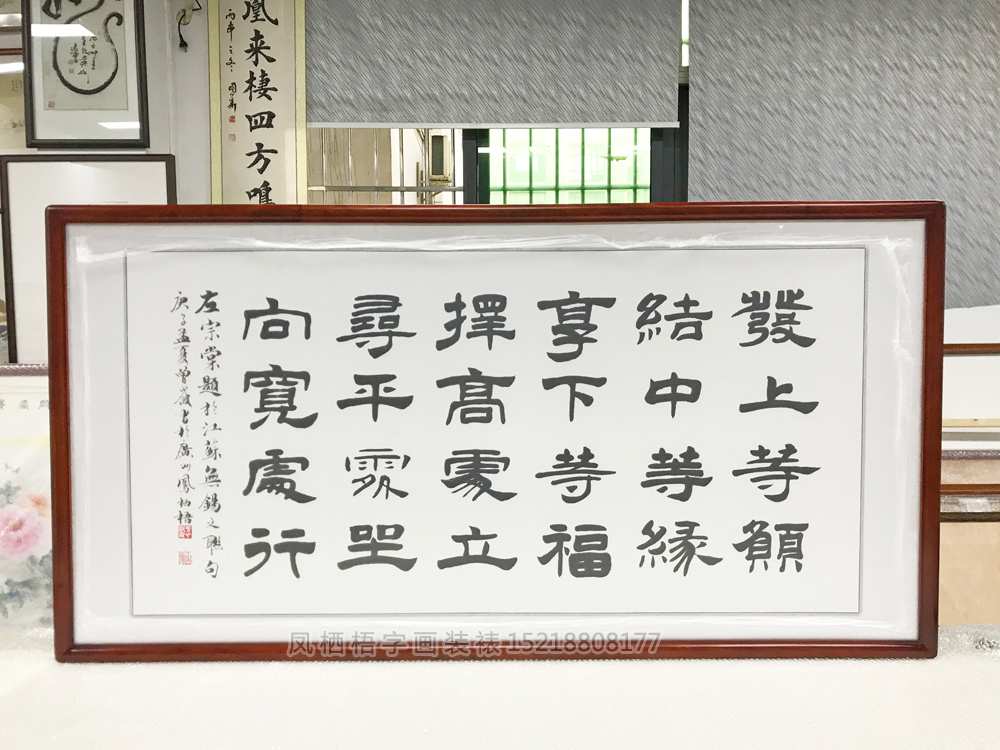 發上等願
結中等緣
享下等福
擇高處立
尋平處坐
向寬處行
左宗棠題於江蘇無錫之聯句
庚子孟夏曾薇書於廣州鳳栖梧
凰来棲四方鳴
丙申之冬
凤栖梧字画装裱 15218808177